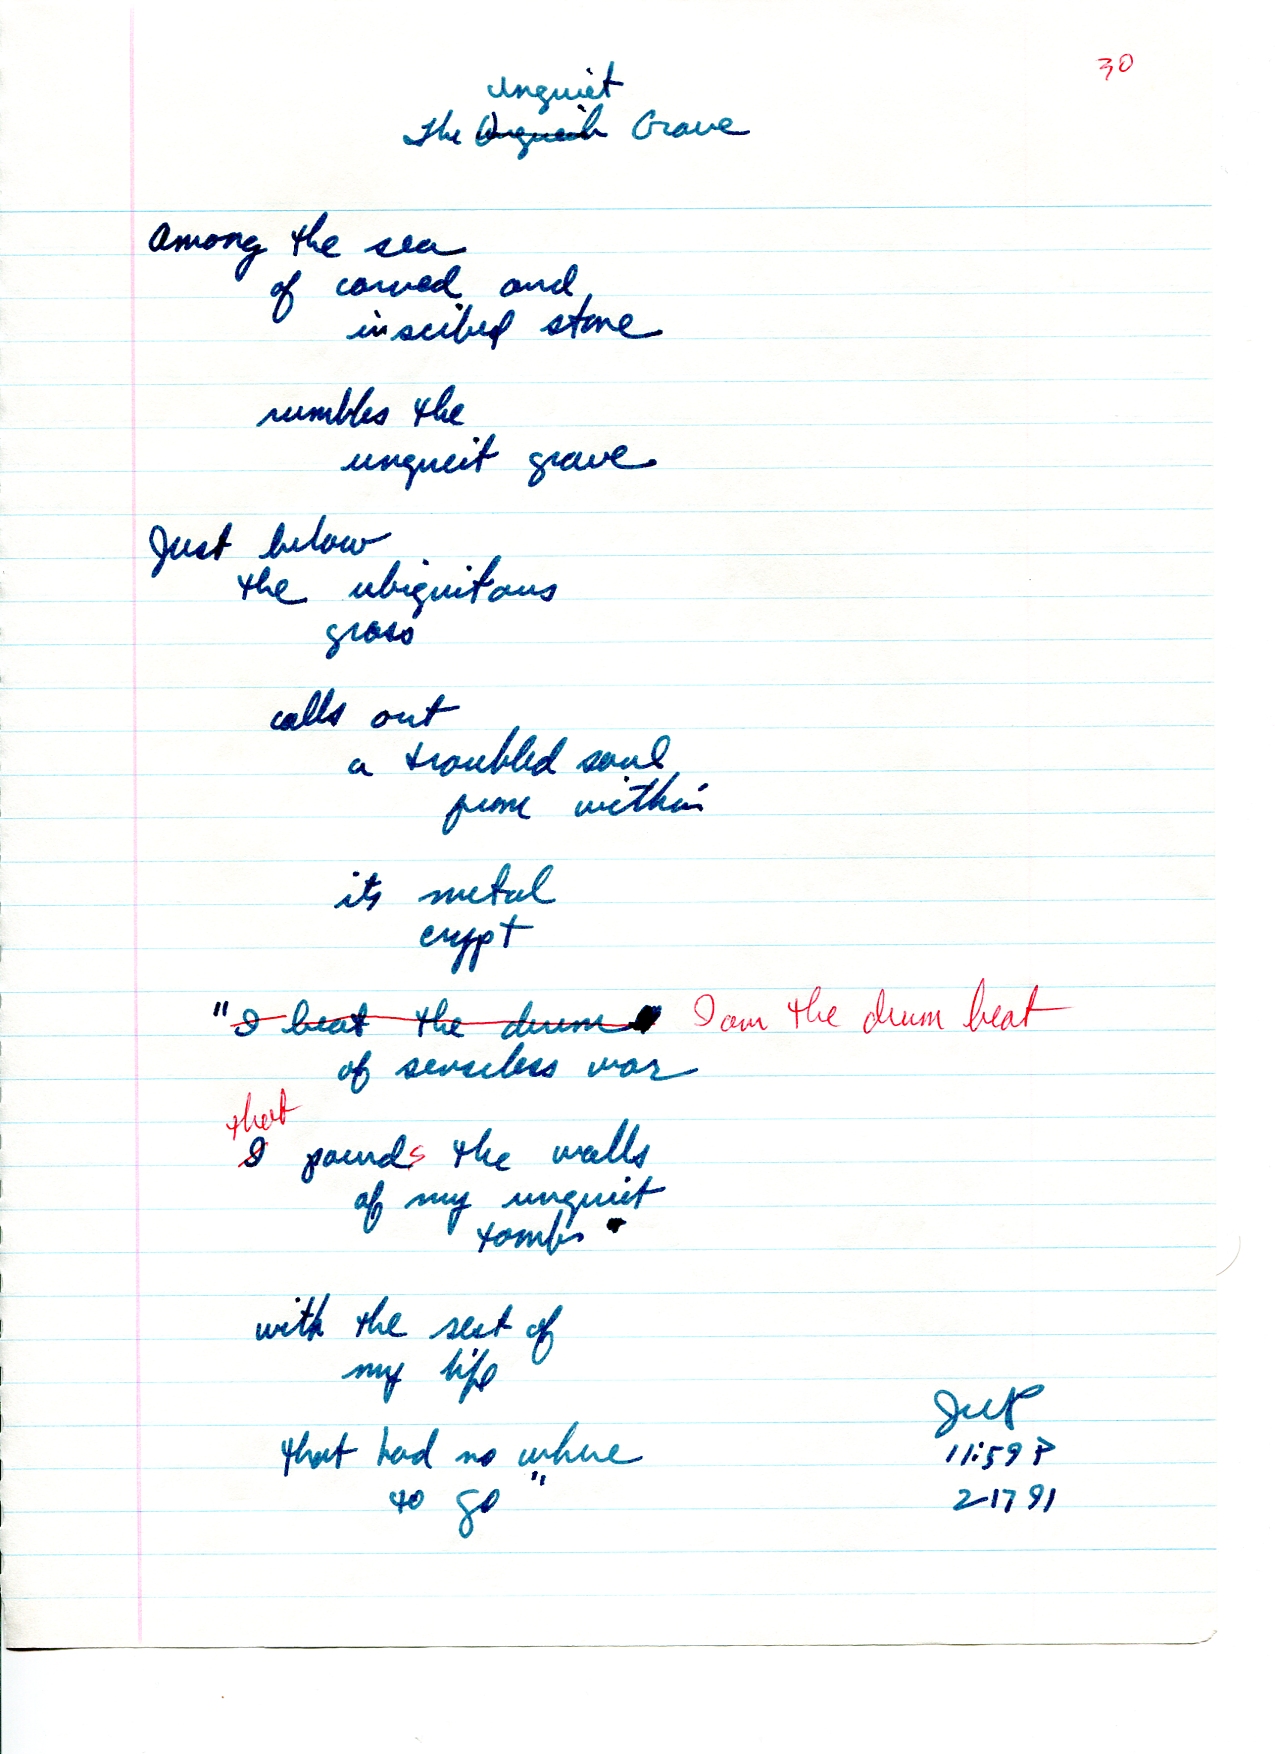 30
Unquiet
The Unqueit Grave
Among the sea
of carved and
inscibed stone
rumbles the
unqueit grave
Just below
the ubiquitous
grass
calls out
a troubled soul
from within
its metal
crypt
"I beat the drum I am the drum beat
of senseless war
that
I pounds the walls
of my unquiet
tombs
with the rest of
my life
that had no where
to go"
11:59 P
2-17 91